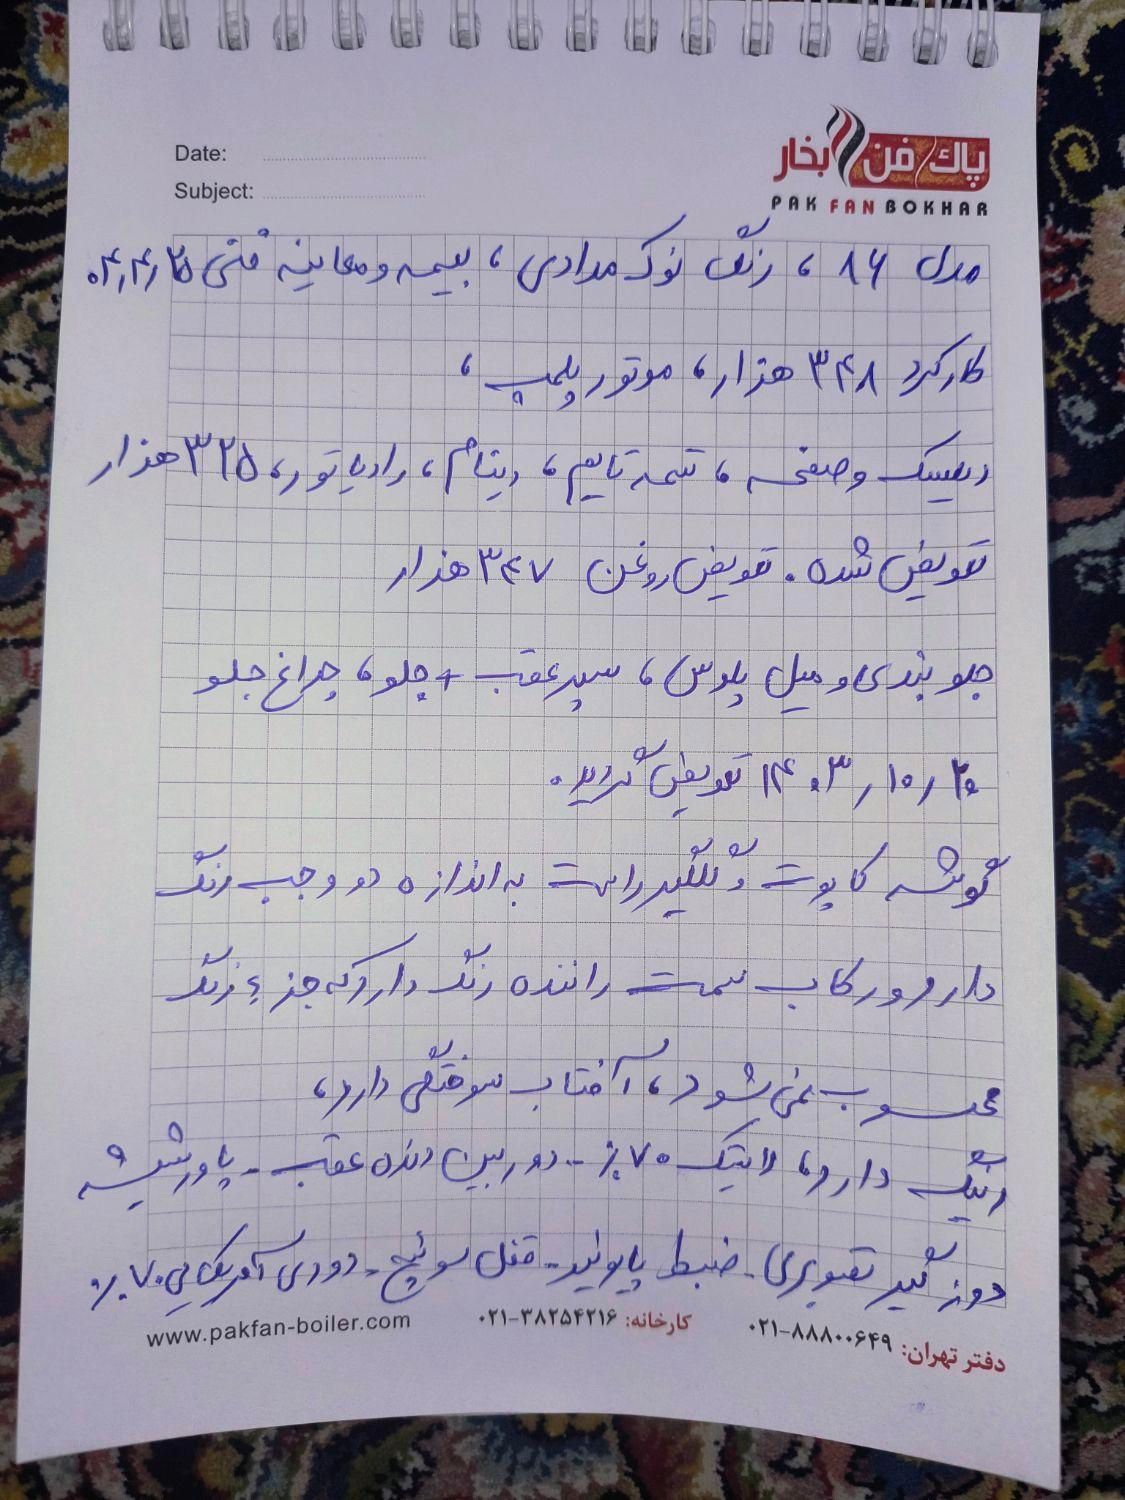 پاک فن بخار
PAK FAN BOKHAR
Date:
Subject:
مدل ۸۶ ، رنگ نوک مدادی ، بیمه و معاینه فنی ۰۴٫۴٫۲۵
کارکرد ۳۴۸ هزار ، موتور پلمپ ،
دیسک و صفحه ، تسمه تایم ، دینام ، رادیاتور ، ۳۲۵ هزار
تعویض شده . تعویض روغن ۳۴۷ هزار
جلو بندی و میل پلوس ، سپر عقب + جلو ، چراغ جلو
۱۴۰۳٫۱۰٫۲۰ تعویض گردید .
گوشه کاپوت و گلگیر راست به اندازه دو وجب رنگ
دارد و رکاب سمت راننده رنگ دارد که جزء رنگ
محسوب نمی شود ، آفتاب سوختگی دارد ،
رینگ دارد ، لاستیک ۷۰٪ - دوربین دنده عقب - پاور شیشه
دزد گیر تصویری - ضبط پایونیر - قفل سوئیچ - دودی آمریکایی ۷۰٪
دفتر تهران: ۰۲۱-۸۸۸۰۰۶۴۹ کارخانه: ۰۲۱-۳۸۲۵۴۲۱۶ www.pakfan-boiler.com